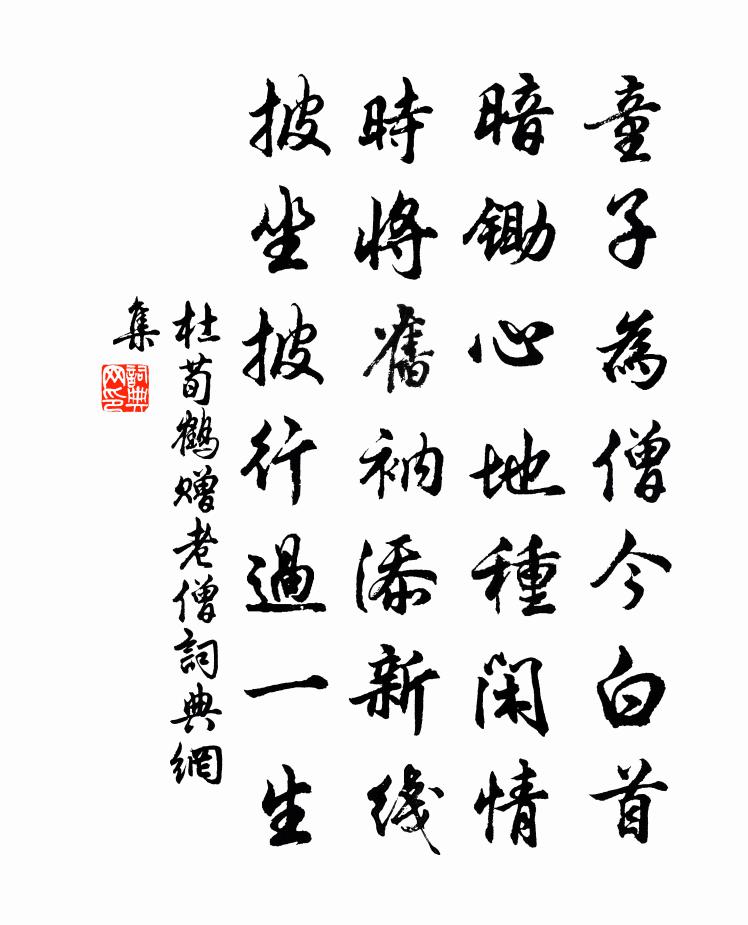 童子為僧今白首
暗鋤心地種閑情
時將舊衲添新线
披坐披行過一生
杜荀鶴贈老僧詞典網
集
詞典
网印